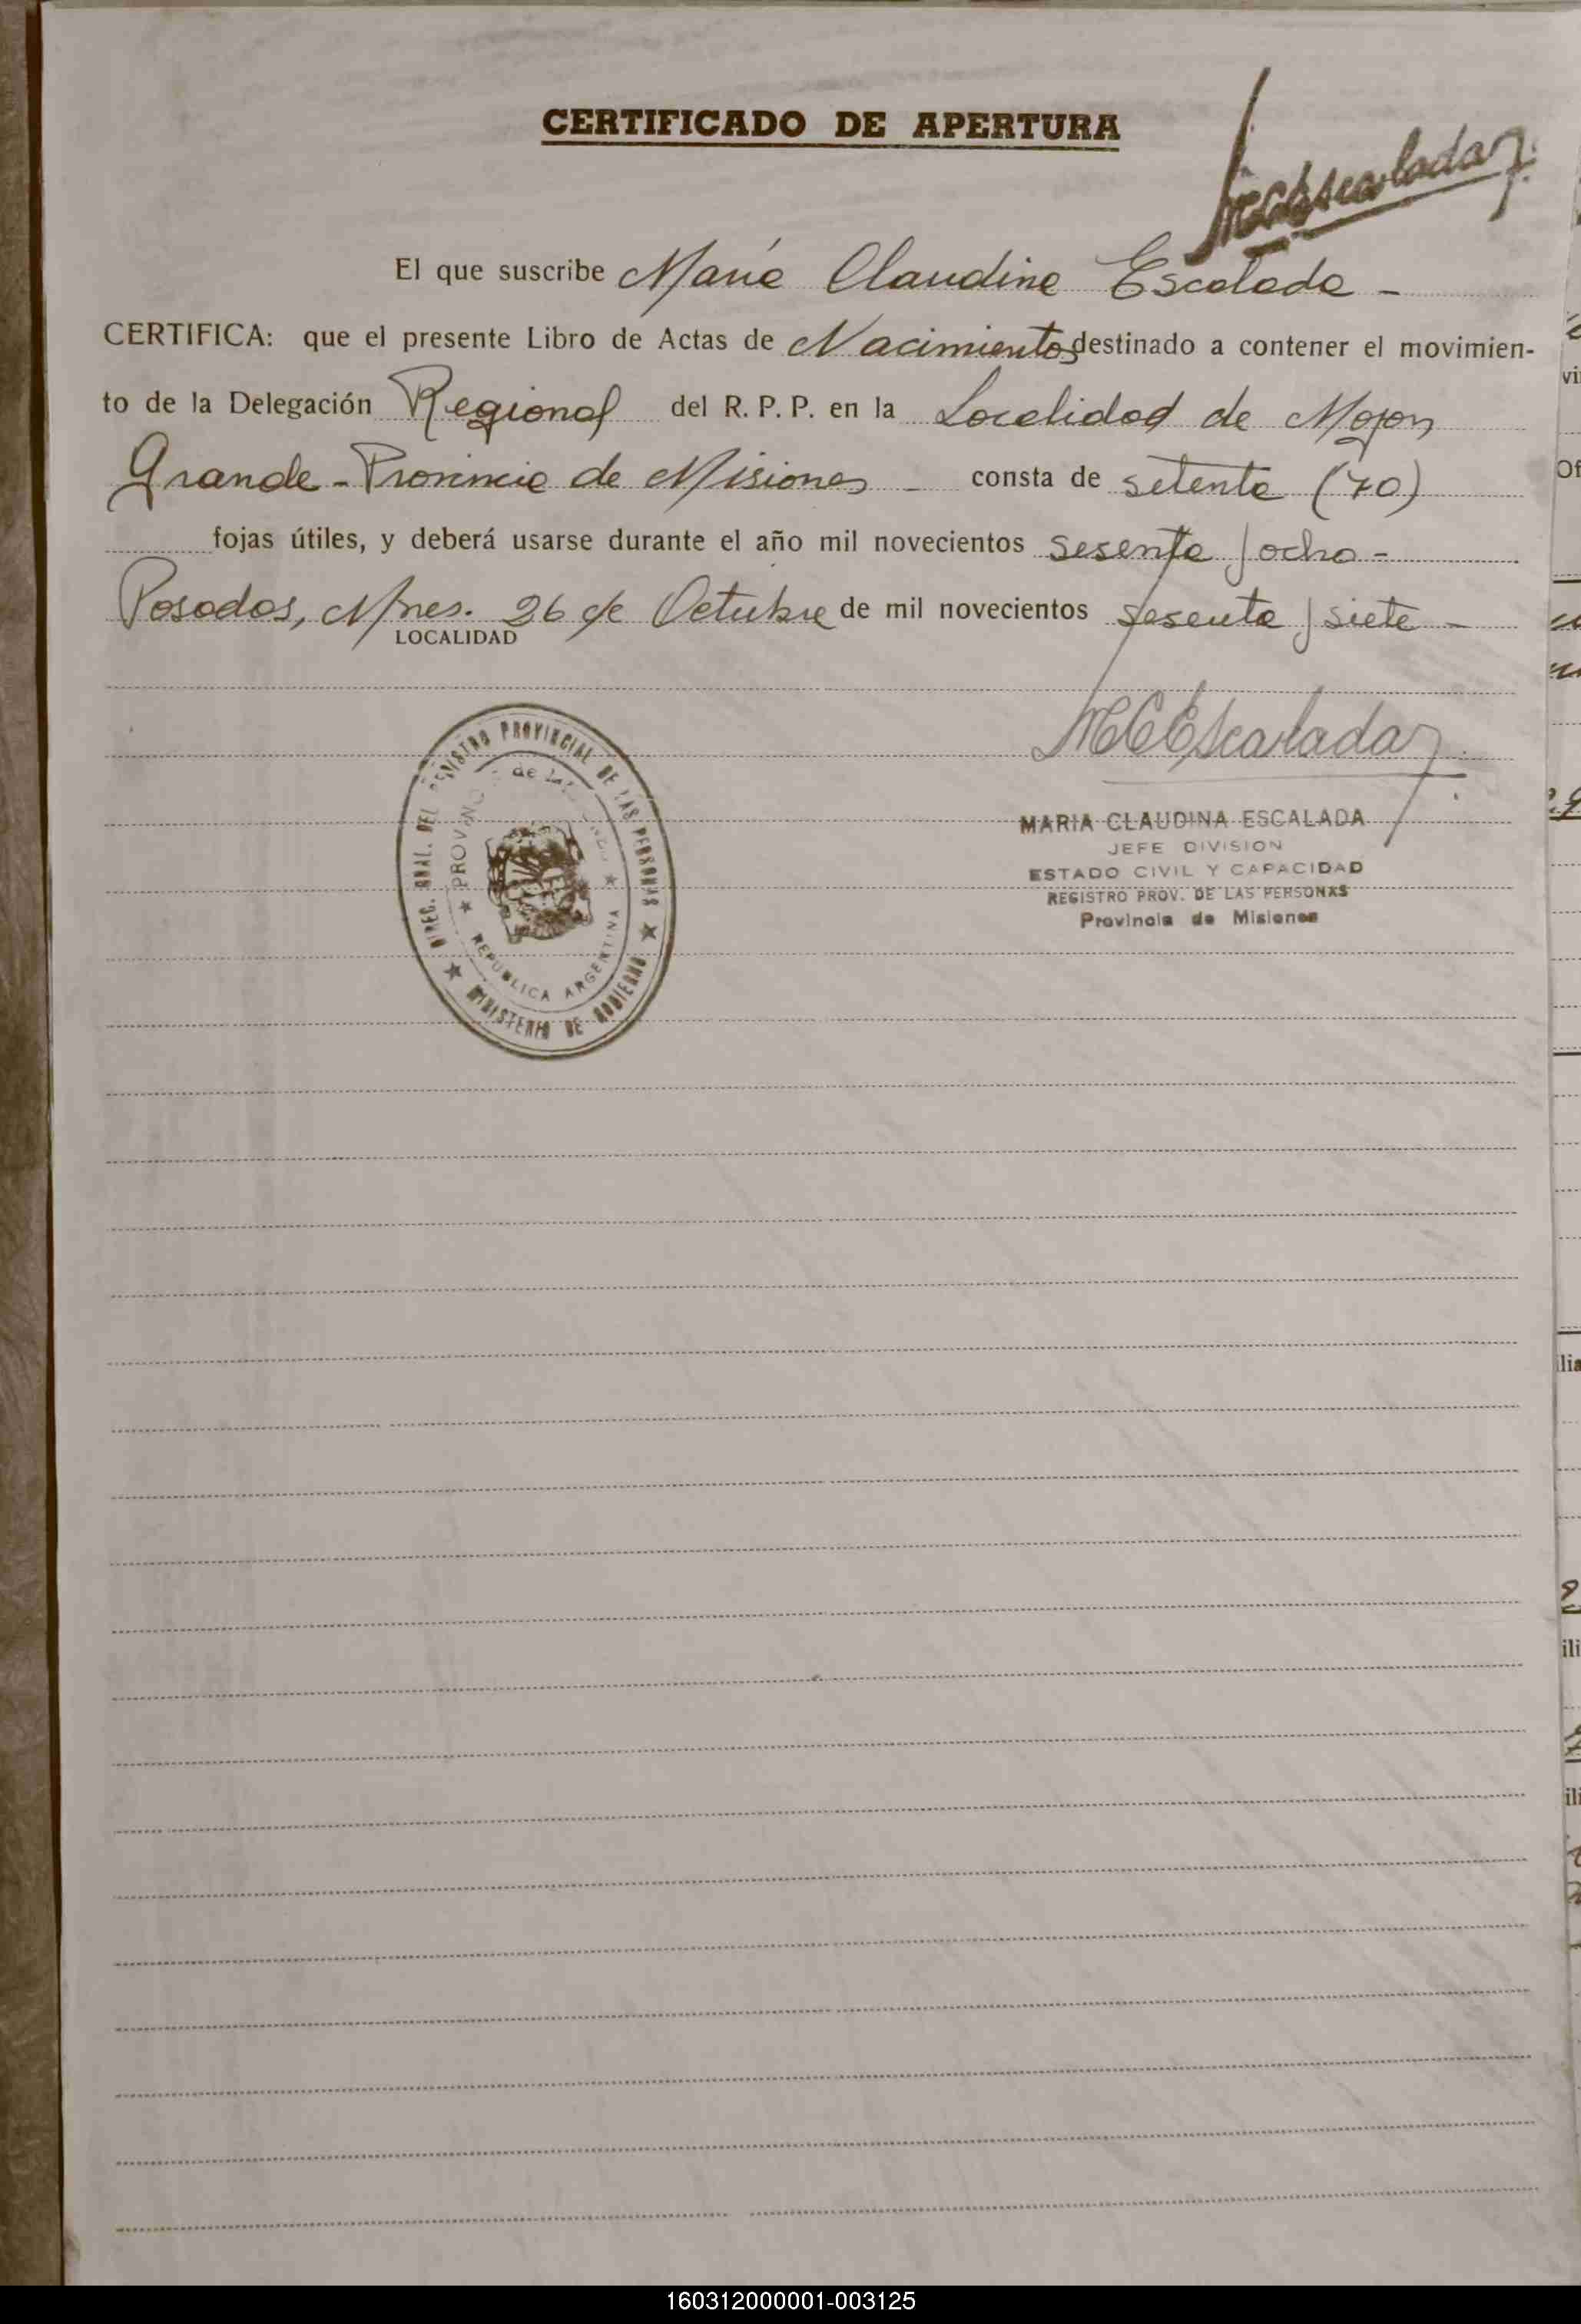 CERTIFICADO DE APERTURA
MCEscalada
El que suscribe María Claudina Escalada -
CERTIFICA: que el presente Libro de Actas de Nacimientos destinado a contener el movimien-
to de la Delegación Regional del R. P. P. en la Localidad de Mojon
Grande - Provincia de Misiones - consta de setenta (70)
fojas útiles, y deberá usarse durante el año mil novecientos sesenta y ocho -
Posadas, Mnes. 26 de Octubre de mil novecientos sesenta y siete -
LOCALIDAD
MCEscalada
MARIA CLAUDINA ESCALADA
JEFE DIVISION
ESTADO CIVIL Y CAPACIDAD
REGISTRO PROV. DE LAS PERSONAS
Provincia de Misiones
DIREC. GRAL. DEL REGISTRO PROVINCIAL DE LAS PERSONAS
★ MINISTERIO DE GOBIERNO ★
★ REPUBLICA ARGENTINA ★
160312000001-003125